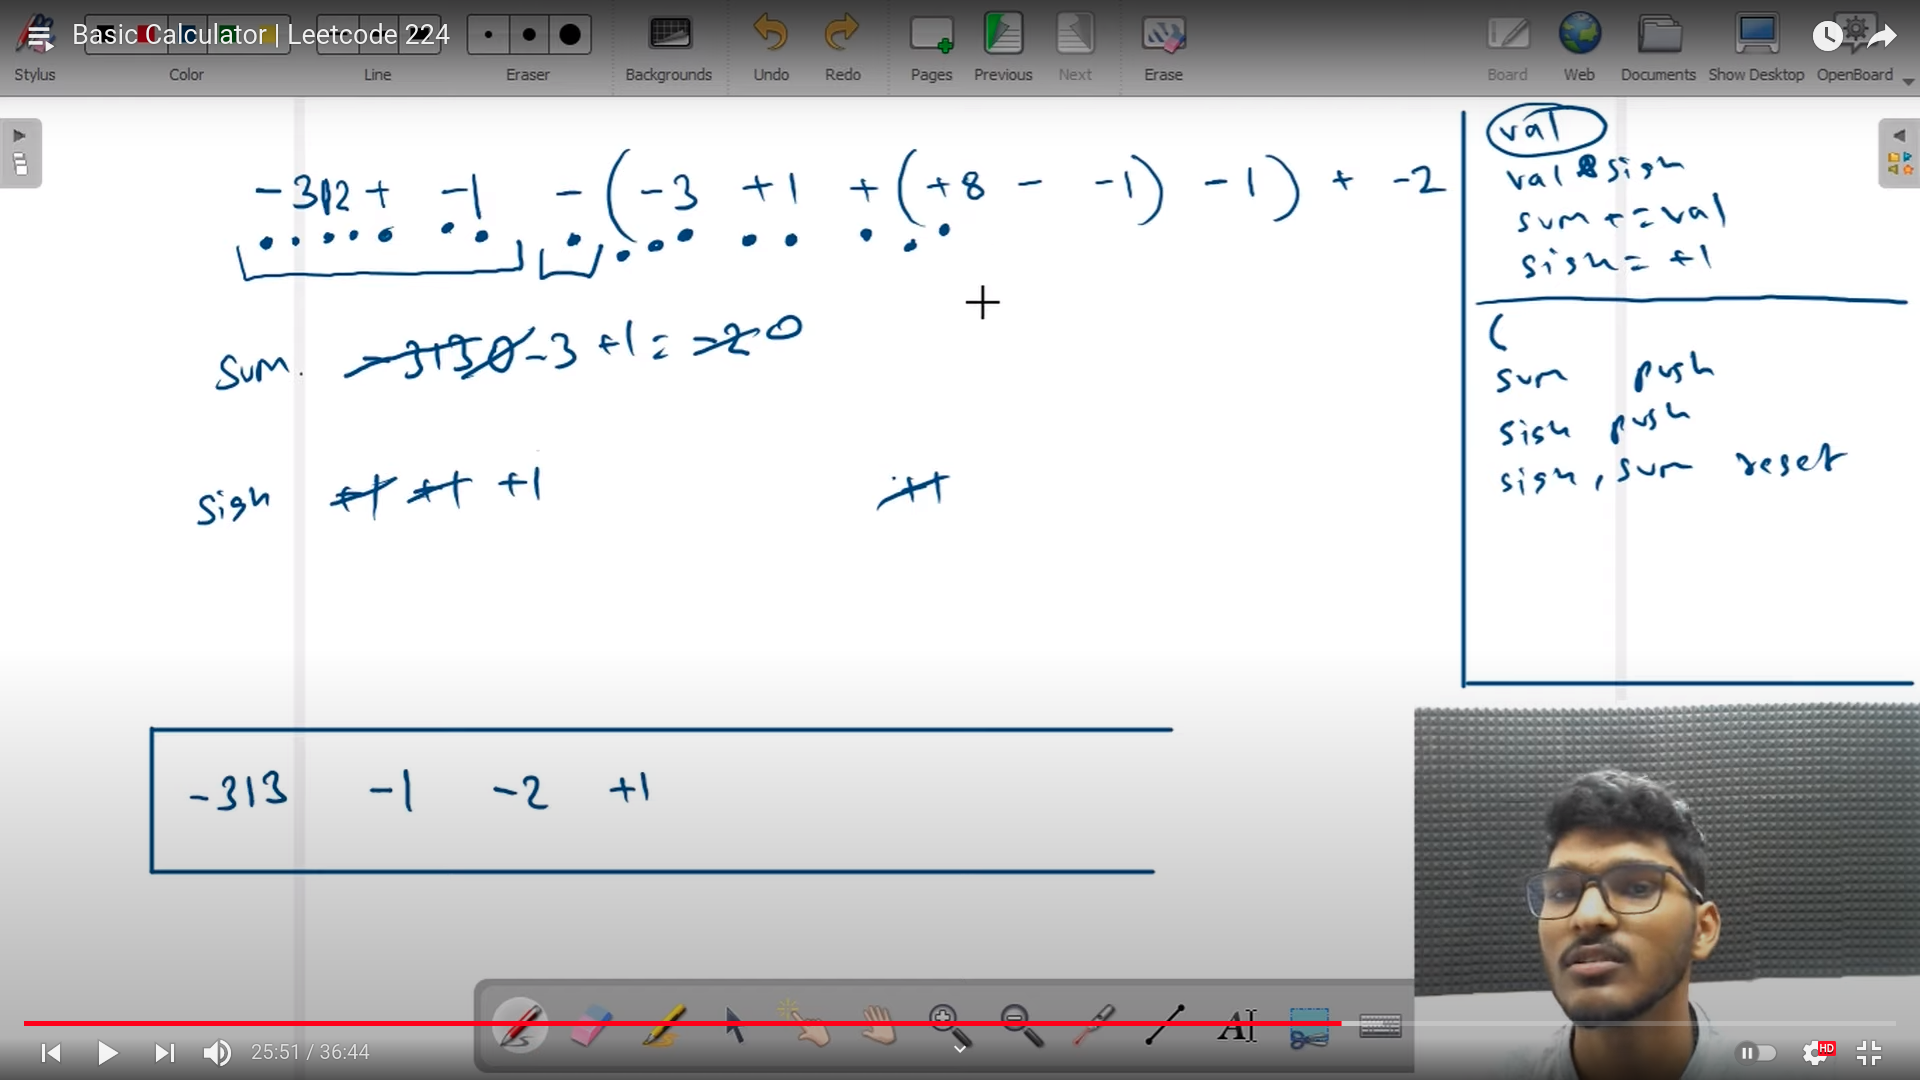 Basic Calculator | Leetcode 224
Stylus Color Line Eraser Backgrounds Undo Redo Pages Previous Next Erase Board Web Documents Show Desktop OpenBoard
-312 + -1 - (-3 +1 + (+8 - -1) -1) + -2
sum. -3130-3 +1 = -2 0
sign +1 +1 +1 +1
-313 -1 -2 +1
val
val * sign
sum += val
sign = +1
(
sum push
sign push
sign, sum reset
AI
25:51 / 36:44
HD